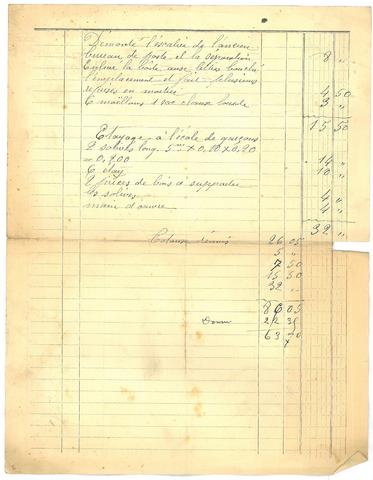 Démonté l'escalier de l'ancien
bureau de poste et la séparation 8 "
Enlevé la boite aux lettres bouché
l'emplacement et fait plusieurs
reprises en matin 4 50
6 maillons 1 sac chaux lourde 3 "
15 50
Etayage à l'école de garçons
2 solives long. 5 m x 0,20 x 0,20
= 0,400 14 "
6 etay 10 "
2 pièces de bois à supporter
les solives 4 "
main d'œuvre 4 "
32 "
Totaux réunis 26 05
5 "
7 50
15 50
32 "
86 05
Donné 22 35
63 70